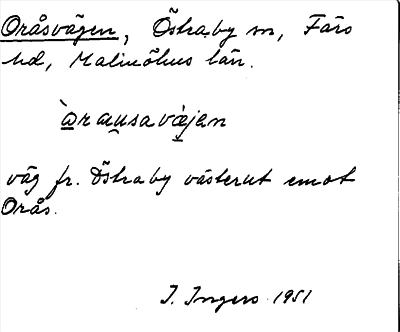 Oråsvägen, Östraby sn, Färs
hd, Malmöhus län.
väg fr. Östraby västerut emot
Orås.
I. Ingers 1951